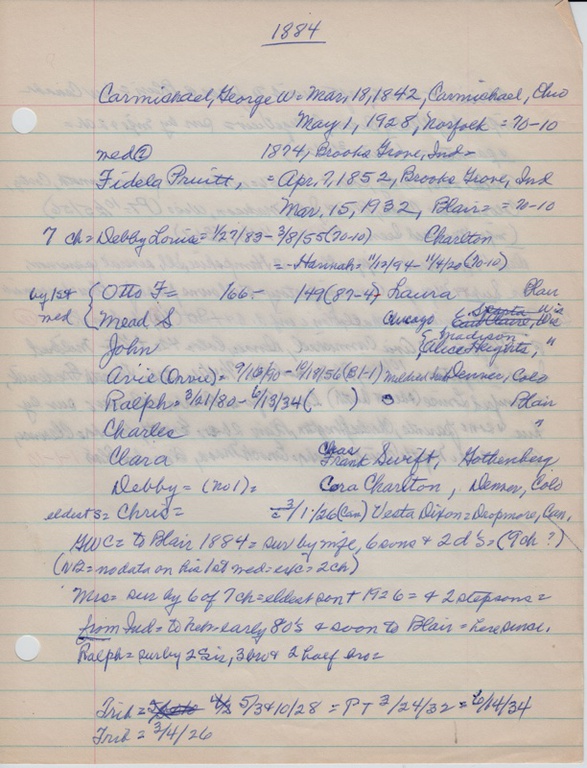 1884
Carmichael, George W = Mar, 18, 1842, Carmichael, Ohio
May 1, 1928, Norfolk = 70-10
med ② 1874, Brooks Grove, Ind =
Fidela Pruitt, = Apr, 7, 1852, Brooks Grove, Ind
Mar, 15, 1932, Blair = = 70-10
7 ch = Debby Louisa = 1/27/83 - 3/8/55 (70-10) Charlton
= - Hannah = 11/12/94 - 11/4/20 (70-10)
by 1st { Otto F = 166 - 149 (87-4) Laura Blair
med { Mead S Chicago Wis
Eau Claire, Wis
Madison
John Alice Heights, "
Arie (Orvie) = 9/16/90 - 10/18/56 (81-1) Denver, Colo
Ralph = 3/21/80 - 6/13/34 ( ) Blair
Charles "
Clara Chas Frank Swift, Gothenberg
Debby = (No 1) = Cora Charlton, Denver, Colo
eldest s = Chris = = 3/1/26 (Can) Vesta Dixon = Deopmore, Can.
GWC = to Blair 1884 = sur by wife, 6 sons & 2 d's = (9 ch?)
(NB = no data on his 1st med = exc = 2 ch)
Mrs = sur by 6 of 7 ch = eldest son + 1926 = & 2 stepsons =
from Ind = to Neb = early 80's & soon to Blair = here since.
Ralph = sur by 2 sis, 3 bro & 2 half bro =
Trib = 5/3 & 10/28 = PT 3/24/32 = 6/14/34
Trib = 3/4/26